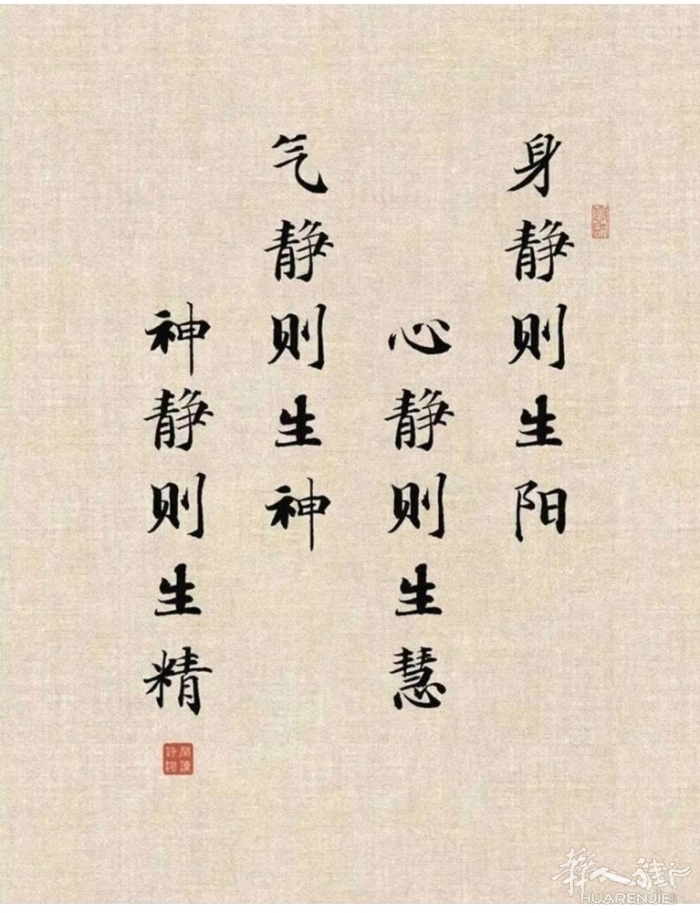 身静则生阳
心静则生慧
气静则生神
神静则生精
華人街
HUARENJIE